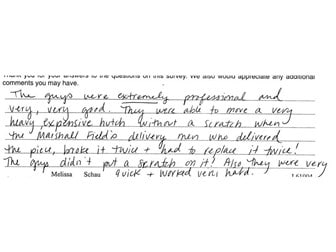 Thank you for your answers to the questions on this survey. We also would appreciate any additional
comments you may have.
The guys were extremely professional and
very, very good. They were able to move a very
heavy, expensive hutch without a scratch when
the Marshall Field's delivery men who delivered
the piece, broke it twice + had to replace it twice!
The guys didn't put a scratch on it! Also, they were very
Melissa Schau quick + worked very hard.